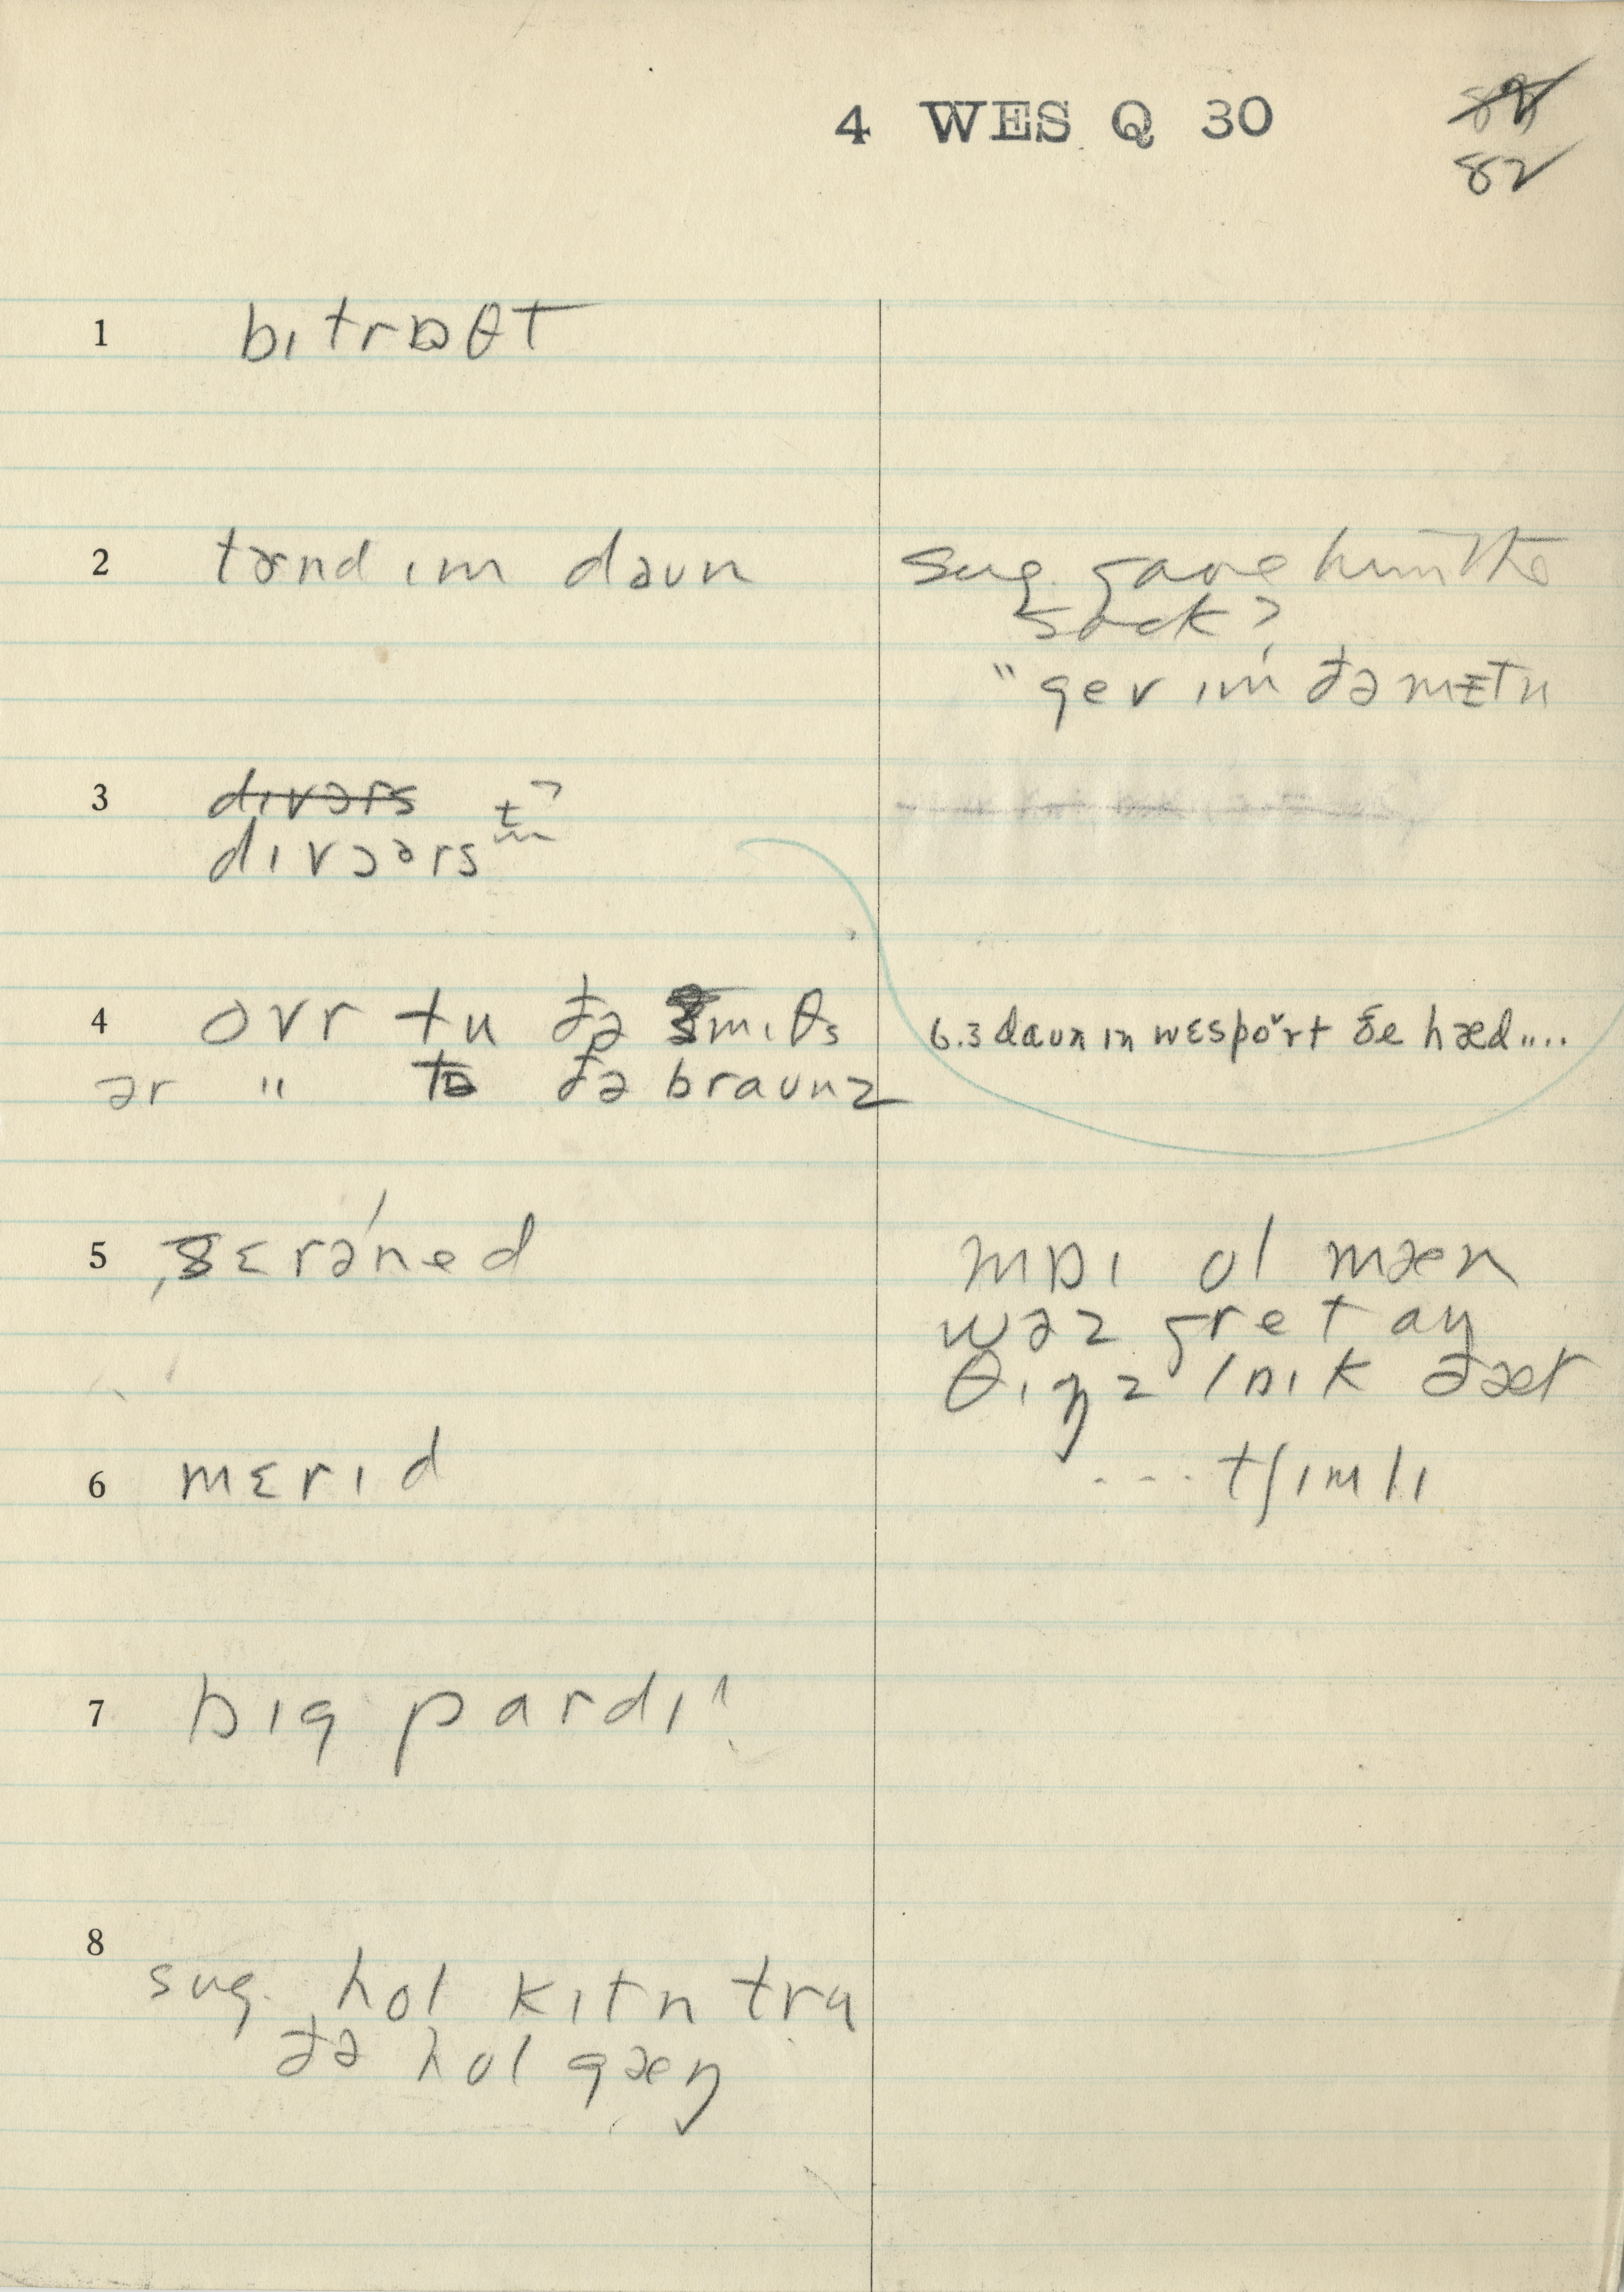 4 WES Q 30
82
1 bɪtrɒθt
2 tɜrnd ɪm daʊn
sug. gave him the
sack?
" gev ɪm ðə mɪtn
3 dɪvərs
dɪvɔərs
4 ovr tu ðə smɪθs
ər " tə ðə braʊnz
6.3 daʊn ɪn wɛsport ðe hæd....
5 ʃɛrəned
mɒɪ ol mæn
wəz gret an
θɪŋz lɒɪk ðæt
6 mɛrɪd
... tʃɪmlɪ
7 bɪg pardɪ
8
sug. hol kɪtn tru
ðə hol gæŋ